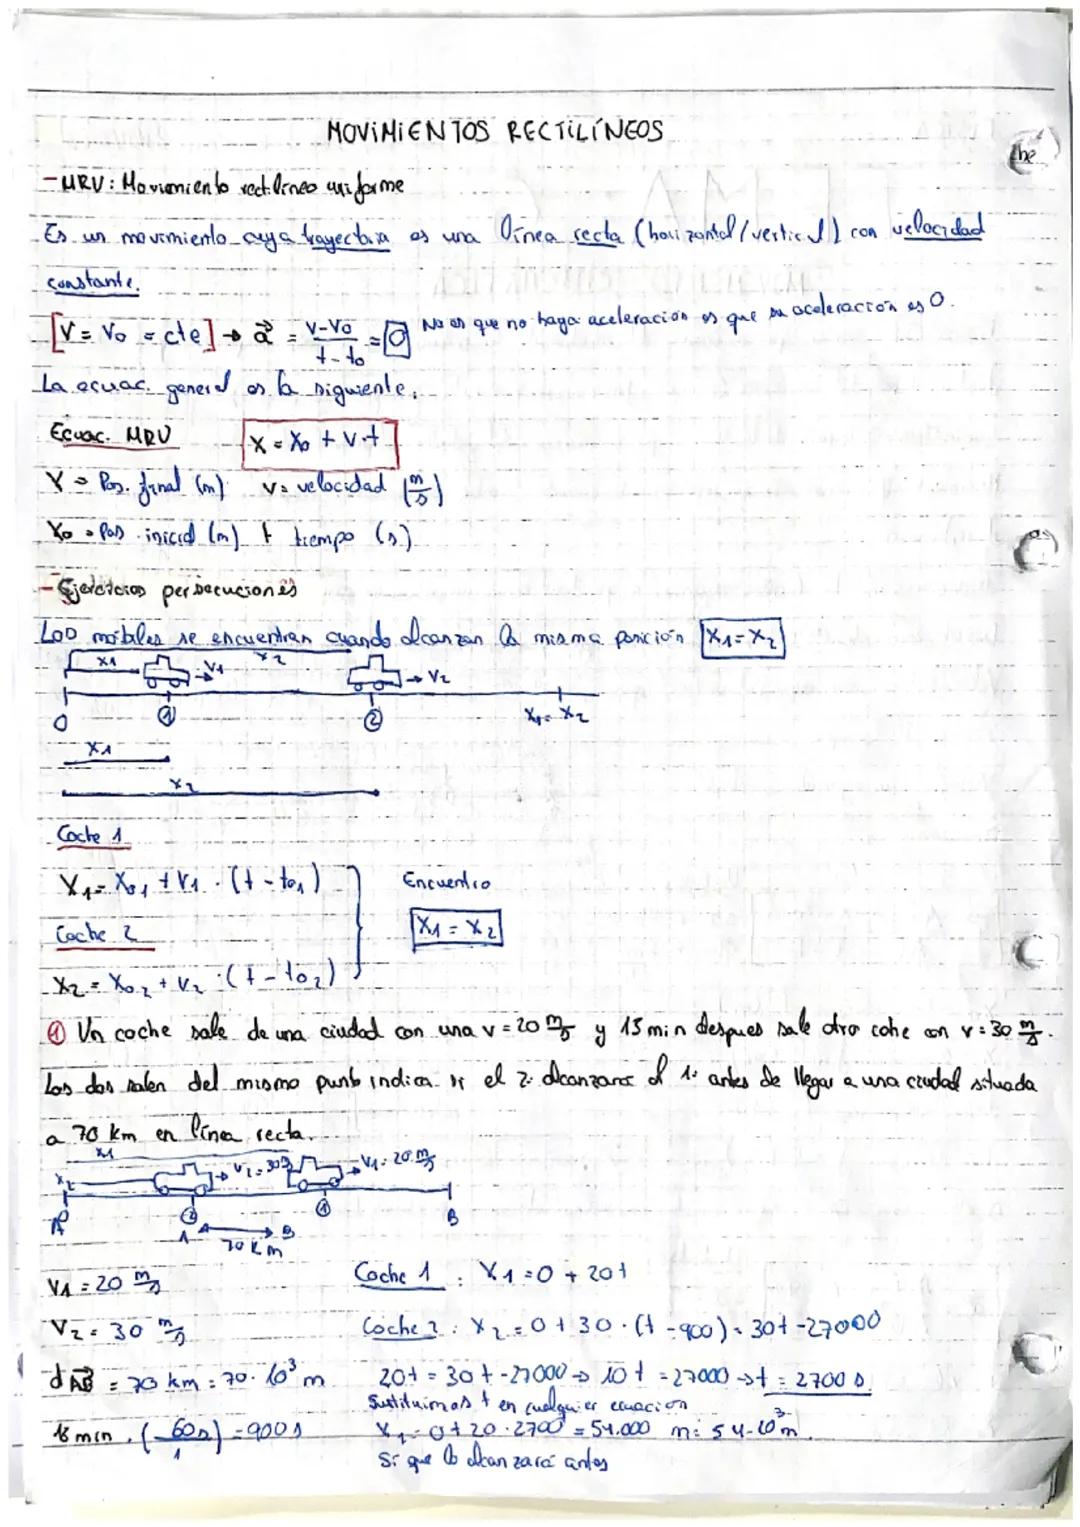 MOVIMIENTOS RECTILÍNEOS
- MRU: Movimiento rectilíneo uniforme
Es un movimiento cuya trayectoria es una línea recta (horizontal/vertical) con velocidad
constante.
[V = V₀ = cte] → a⃗ = V-V₀ / t-t₀ = 0 No es que no haga aceleración es que su aceleración es 0.
La ecuac. general es la siguiente.
Ecuac. MRU X = X₀ + V·t
X = Pos. final (m) V = velocidad (m/s)
X₀ = Pos. inicial (m) t tiempo (s)
- Ejercicios persecuciones
Los móviles se encuentran cuando alcanzan la misma posición X₁=X₂
X₁ → V₁ X₂ → V₂
0 ① ② X₁ = X₂
X₁
X₂
Coche 1
X₁ = X₀₁ + V₁ · (t - t₀₁) Encuentro
Coche 2 X₁ = X₂
X₂ = X₀₂ + V₂ · (t - t₀₂)
① Un coche sale de una ciudad con una v = 20 m/s y 15 min despues sale otro cohe con v = 30 m/s.
Los dos salen del mismo punto indica si el 2º alcanzara al 1º antes de llegar a una ciudad situada
a 70 km en línea recta.
X₁
X₂ → V₂ = 30 → V₁ = 20 m/s
A ② ① B
A → B
70 km
V₁ = 20 m/s Coche 1 : X₁ = 0 + 20t
V₂ = 30 m/s Coche 2 : X₂ = 0 + 30 · (t - 900) = 30t - 27000
d AB = 70 km = 70 · 10³ m 20t = 30t - 27000 → 10t = 27000 → t = 2700 s
Sustituimos t en cualquier ecuación
15 min · (60s / 1) = 900 s X₁ = 0 + 20 · 2700 = 54.000 m = 54·10³ m.
Sí que lo alcanzará antes